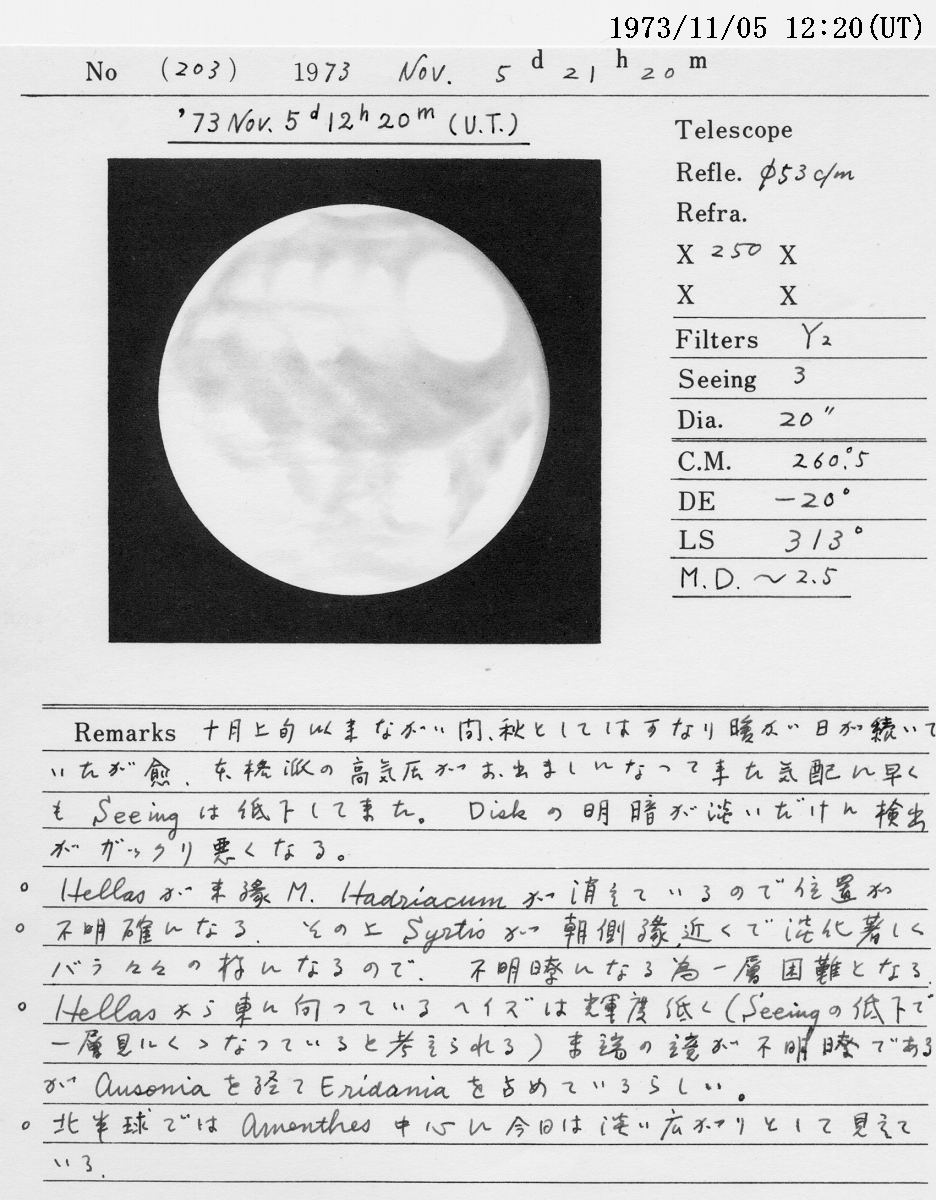 1973/11/05 12:20(UT)
No (203) 1973 Nov. 5 d 21 h 20 m
'73 Nov. 5 d 12 h 20 m (U.T.)
Telescope
Refle. φ53 c/m
Refra.
X 250 X
X X
Filters Y2
Seeing 3
Dia. 20"
C.M. 260.°5
DE -20°
LS 313°
M.D. ~ 2.5
Remarks 十月上旬以来ながい間、秋としてはかなり暖かい日が続いて
いたが愈、 の高気圧がお出ましになって来た気配に早く
も Seeing は低下して来た。 Disk の明暗が淡いだけに検出
がガックリ悪くなる。
○ Hellas が 東縁 M. Hadriacum が消えているので位置が
○ 不明確になる. その上 Syrtis が朝側縁近くで淡化著しく
バラ々々の様になるので、不明瞭になる為一層困難となる.
○ Hellas から東に向っているヘイズは輝度低く (Seeing の低下で
一層見にくゝなっていると考えられる) 末端の境が不明瞭である
が Ausonia を経て Eridania を占めているらしい。
○ 北半球では Amenthes 中心に今日は淡い広がりとして見えて
いる.